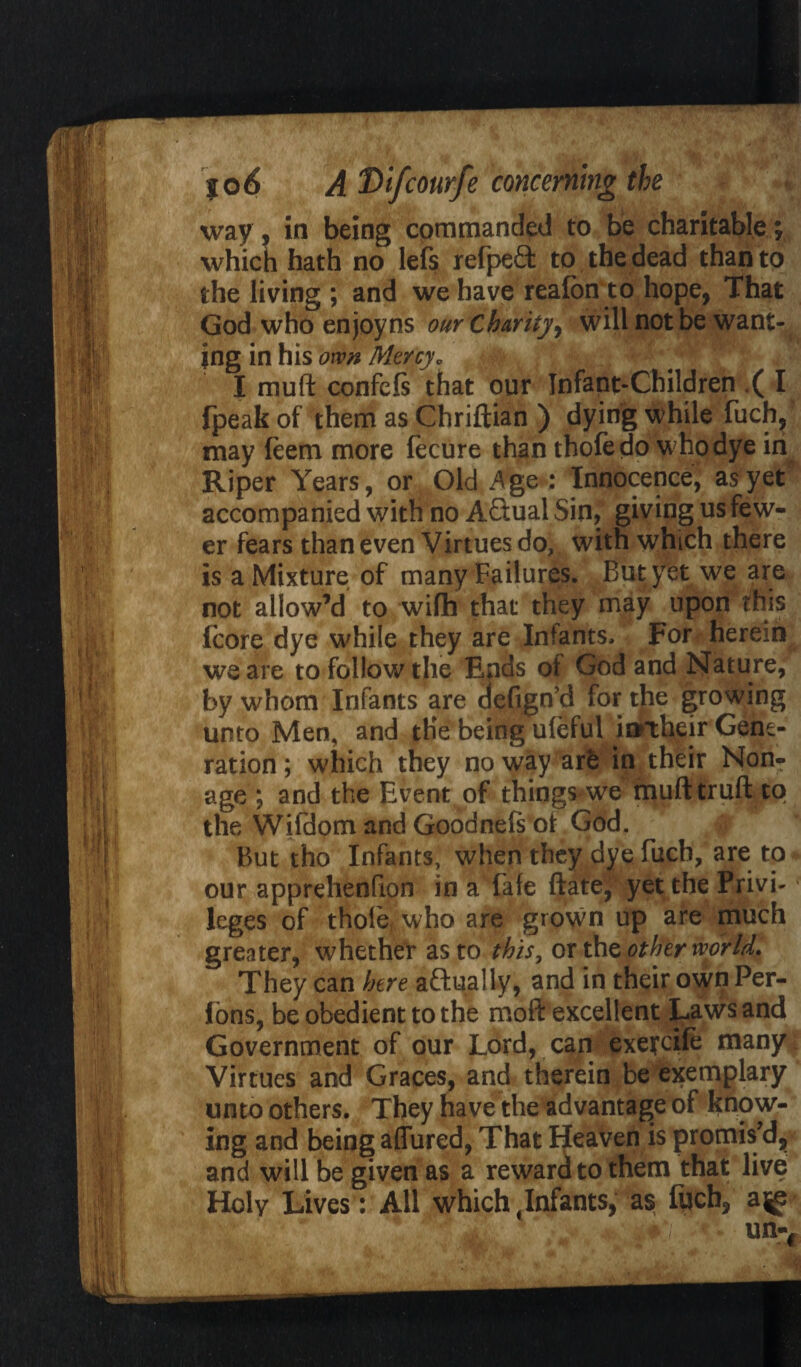 106 A Diſcourſe concerning the
way, in being commanded to be charitable;
which hath no leſs reſpect to the dead than to
the living; and we have reaſon to hope, That
God who enjoyns our Charity, will not be want-
ing in his own Mercy.
I muſt confeſs that our Infant-Children ( I
ſpeak of them as Chriſtian ) dying while ſuch,
may ſeem more ſecure than thoſe do who dye in
Riper Years, or Old Age: Innocence, as yet
accompanied with no Actual Sin, giving us few-
er fears than even Virtues do, with which there
is a Mixture of many Failures. But yet we are
not allow'd to wiſh that they may upon this
ſcore dye while they are Infants. For herein
we are to follow the Ends of God and Nature,
by whom Infants are deſign'd for the growing
unto Men, and the being uſeful in their Gene-
ration; which they no way are in their Non-
age; and the Event of things we muſt truſt to
the Wiſdom and Goodneſs of God.
But tho Infants, when they dye ſuch, are to
our apprehenſion in a ſafe ſtate, yet the Privi-
leges of thoſe who are grown up are much
greater, whether as to this, or the other world.
They can here actually, and in their own Per-
ſons, be obedient to the moſt excellent Laws and
Government of our Lord, can exerciſe many
Virtues and Graces, and therein be exemplary
unto others. They have the advantage of know-
ing and being aſſured, That Heaven is promis'd,
and will be given as a reward to them that live
Holy Lives: All which Infants, as ſuch, are
un-